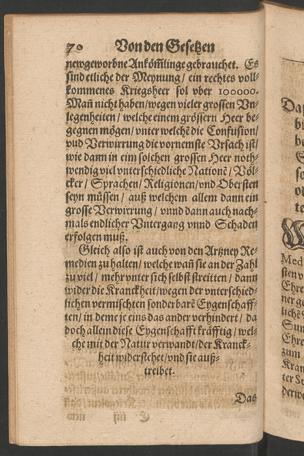 70 Von den Gesetzen
newgeworbne Ankömlinge gebrauchet. Es
sind etliche der Meynung / ein rechtes voll-
kommenes Kriegsheer sol vber 100000.
Mañ nicht haben / wegen vieler grossen Vn-
legenheiten / welche einem grössern Heer be-
gegnen mögen / vnter welchē die Confusion /
vnd Verwirrung die vornemste Vrsach ist /
wie dann in eim solchen grossen Heer noth-
wendig viel vnterschiedliche Nationē / Völ-
cker / Sprachen / Religionen / vnd Obersten
seyn müssen / auß welchem allem dann ein
grosse Verwirrung / vnnd dann auch nach-
mals endlicher Vntergang vnnd Schaden
erfolgen muß.
Gleich also ist auch von den Artzney Re-
medien zu halten / welche wañ sie an der Zahl
zu viel / mehr vnter sich selbst streitten / dann
wider die Kranckheit / wegen der vnterschied-
lichen vermischten sonderbarē Eygenschaff-
ten / in deme je eins das ander verhindert / da
doch allein diese Eygenschafft kräfftig / wel-
che mit der Natur verwandt / der Kranck-
heit widerstehet / vnd sie auß-
treibet.
Das